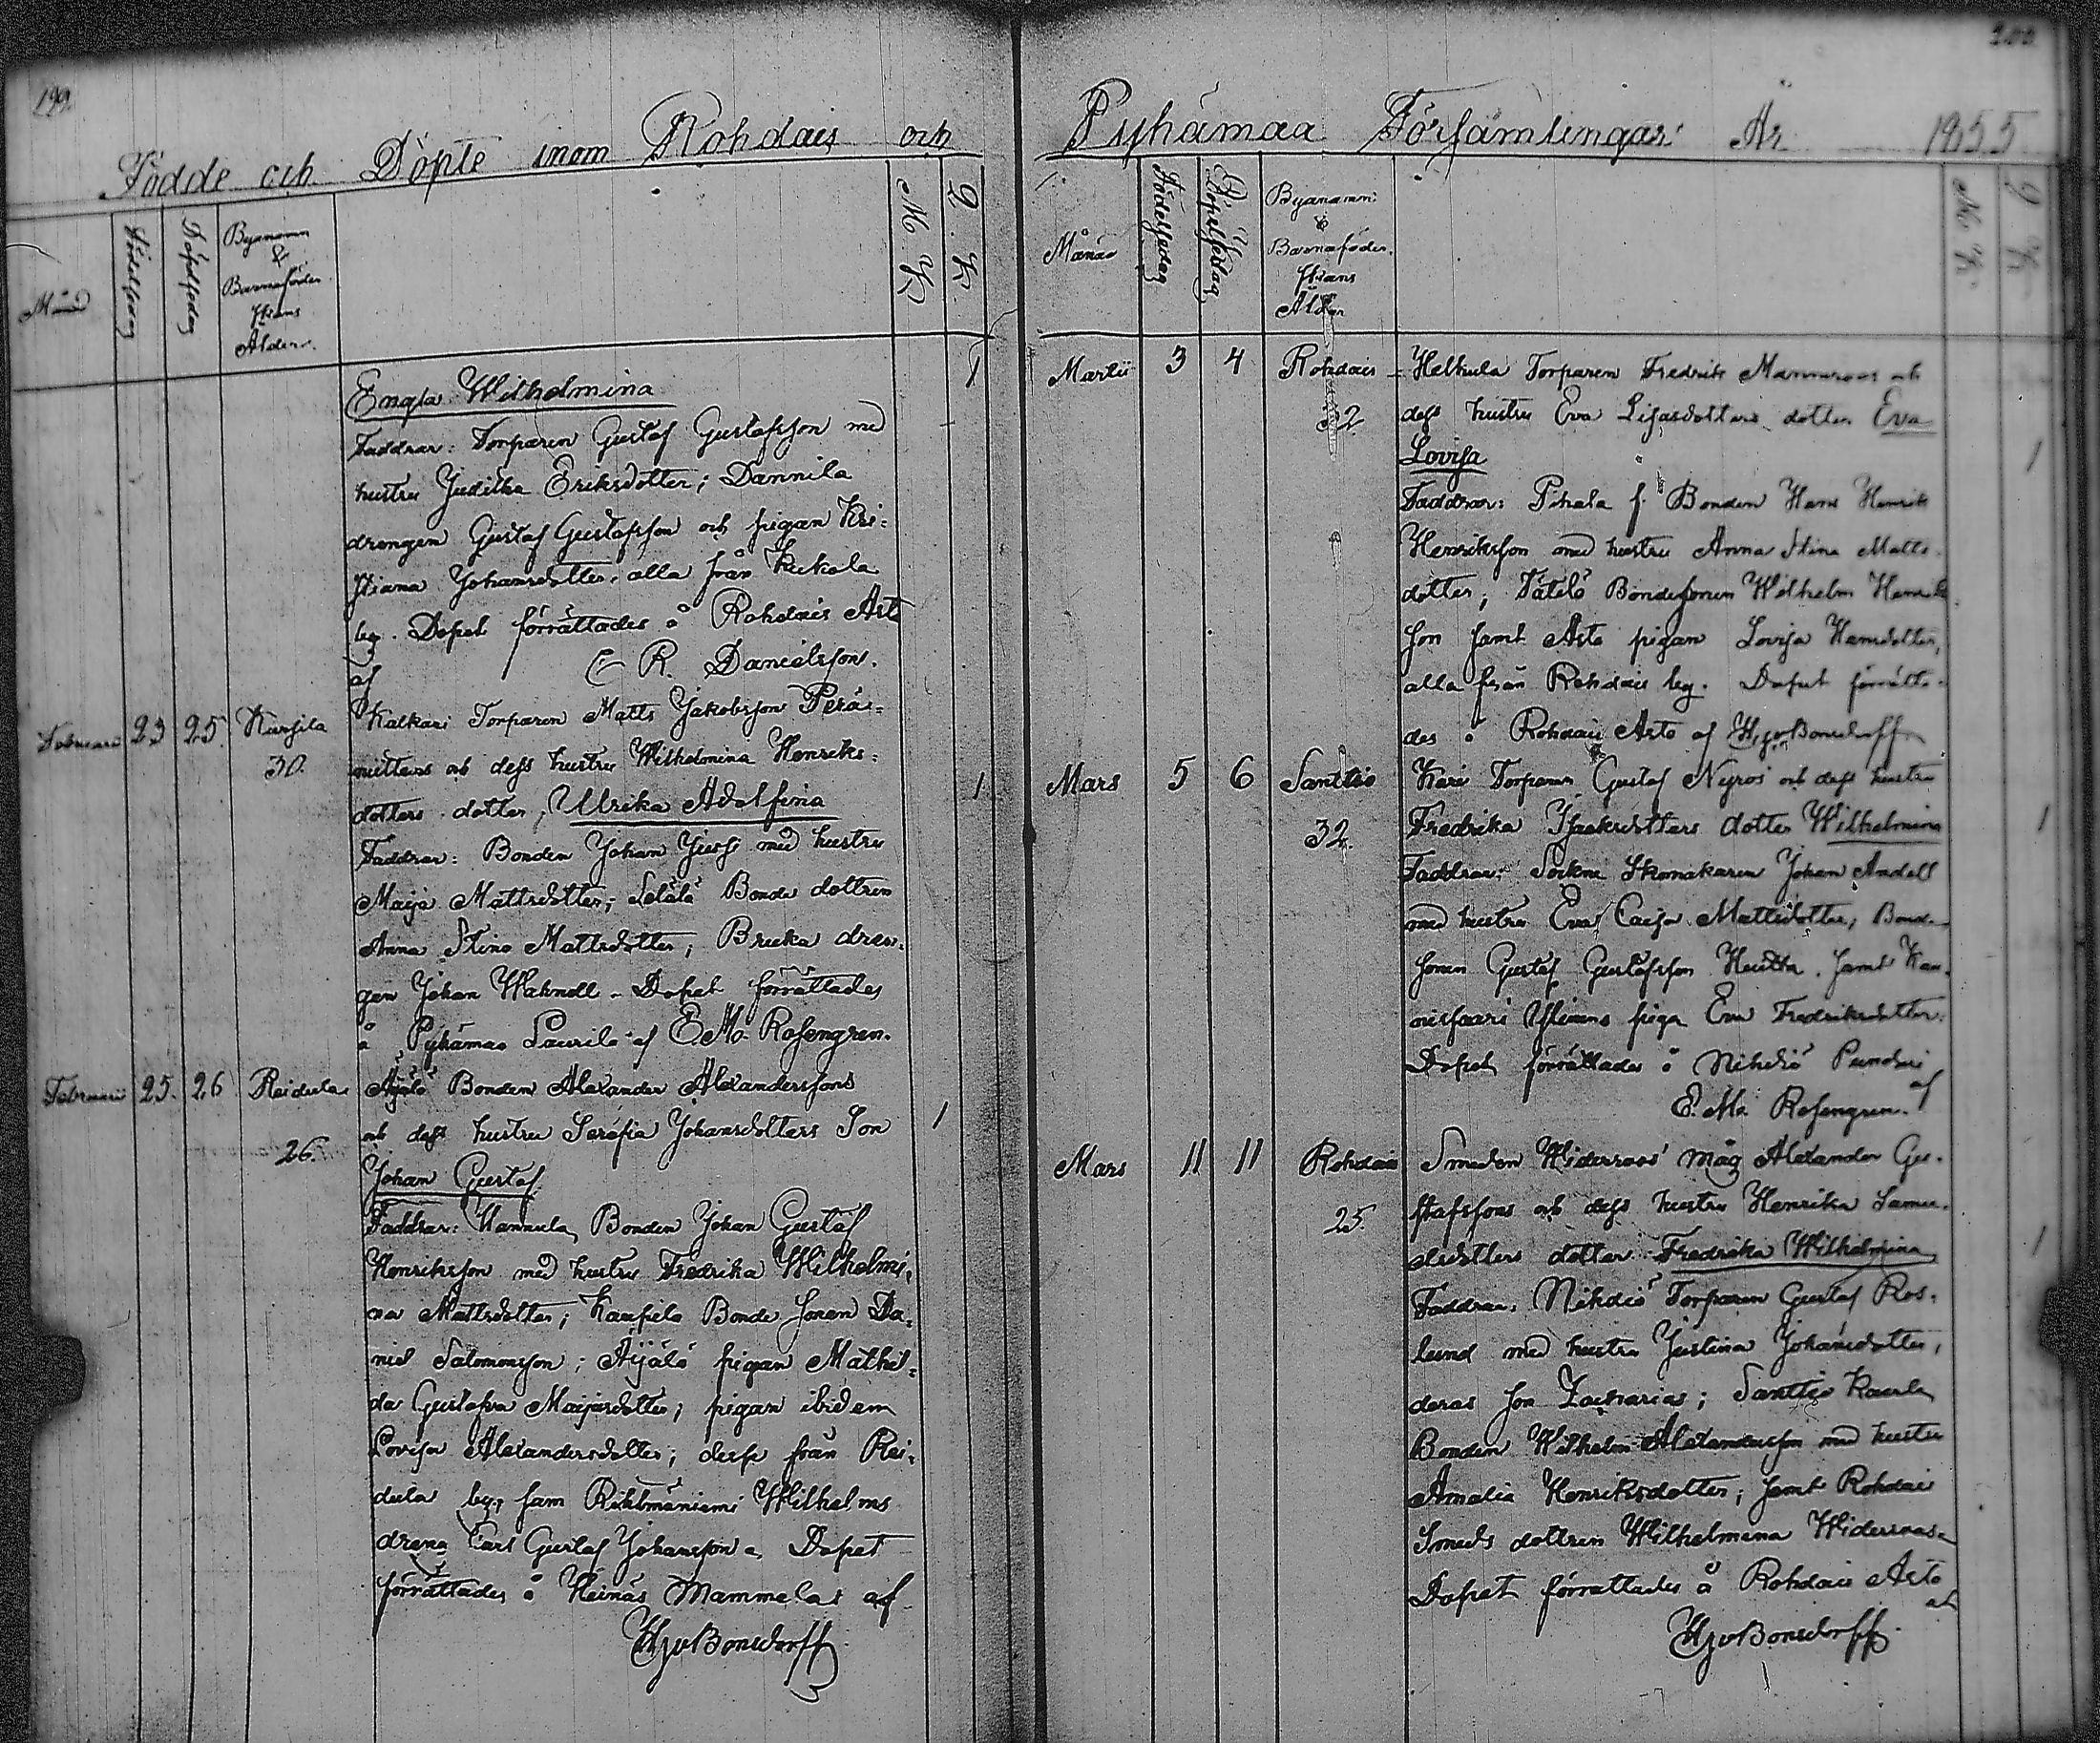 199.
Födde och Döpte inom Rohdais och
Månad
Födelsedag
Döpelsedag
Byanamn
&
Barnaföder.
skans
Ålder.
M. K.
Q. K.
1
Engla Wilhelmina
Faddrar: Torparen Gustaf Gustafsson med
hustru Juditha Eriksdotter; Dannila
drengen Gustaf Gustafsson och pigan Kri=
stiana Johansdotter, alla från Kukola
by. Dopet förrättades å Rohdais Arte
af C R. Danielsson.
Februari 23 25. Kursila Kalkari Torparen Matts Jakobsson Perä=
30. och dess hustru Wilhelmina Henriks=
dotters dotter, Ulrika Adolfina 1
Faddrar: Bonden Johan Jussi med hustru
Maija Mattsdotter; Sälälä Bonde dottren
Anna Stina Mattsdotter; Bruka dren=
gen Johan Wahnell. Dopet förrättades
å Pyhämaa Laurila af E. M. Rosengren.
Februarii 25. 26 Reidula Äijälä Bonden Alexander Alexanderssons
26. och dess hustru Serafia Johansdotters Son 1
Johan Gustaf.
Faddrar: Hannula Bonden Johan Gustaf
Henriksson med hustru Fredrika Wilhelmi=
na Mattsdotter; Kaupila Bonde sonen Da=
niel Salomonsson; Äijälä pigan Mathil=
da Gustafva Maijasdotter; pigan ibidem
Lovisa Alexandersdotter; desse från Rei=
dula by, sam Wilhelms
dreng Carl Gustaf Johansson. Dopet
förrättades å Heinäs Mammelas af
HjvBonsdorff.
200
Pyhämaa Församlingar År 1855
Månad
Födelsedag
Döpelsedag
Byanamn
&
Barnaföder.
skans
Ålder
M K.
Q K
Martii 3 4 Rohdais Helkula Torparen Fredrik Mannsroos och
32 dess hustru Eva Lisasdotters dotter Eva
Lovisa 1
Faddrar: Pihala f. Bonden Hans Henrik
Henriksson med hustru Anna Stina Matts=
dotter; Tätilä Bondesonen Wilhelm Henrik
son samt Arto pigan Lovisa Hansdotter,
alla från Rohdais by. Dopet förrätta=
des å Rohdais Arto af HjvBonsdorff
Mars 5 6 Santtio Kari Torparen Gustaf Nyroos och dess hustru
32. Fredrika Isaksdotters dotter Wilhelmina 1
Faddrar: Sockne Skomakaren Johan Andell
med hustru Eva Caisa Mattsdotter, Bonde
sonen Gustaf Gustafsson Heutta. samt
piga Eva Fredriksdotter.
Dopet förrättades å Nihdiö
af
E. M. Rosengren.
Mars 11 11 Rohdais Smeden Widerroos' måg Alexander Gu=
25. stafssons och dess hustru Henrika Samu=
elsdotters dotter Fredrika Wilhelmina 1
Faddrar: Nihdiö Torparen Gustaf Ros=
lund med hustru Justina Johansdotter,
deras son Zacharias; Santtio Kaurla
Bonden Wilhelm Alexandersson med hustru
Amalia Henriksdotter; samt Rohdais
Smeds dottren Wilhelmina Widerroos.
Dopet förrättades å Rohdais Arto
af
HjvBonsdorff.